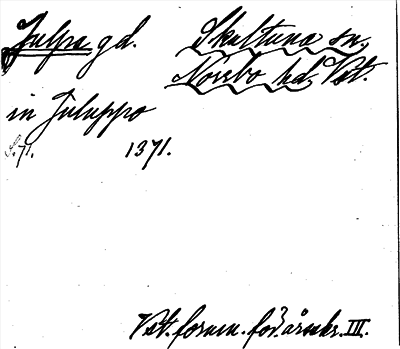 Julpa gd. Skultuna sn,
Norrbo hd, Vst.
in Juluppo
S. 71. 1371.
Vst. fornm. för. årsskr. III.